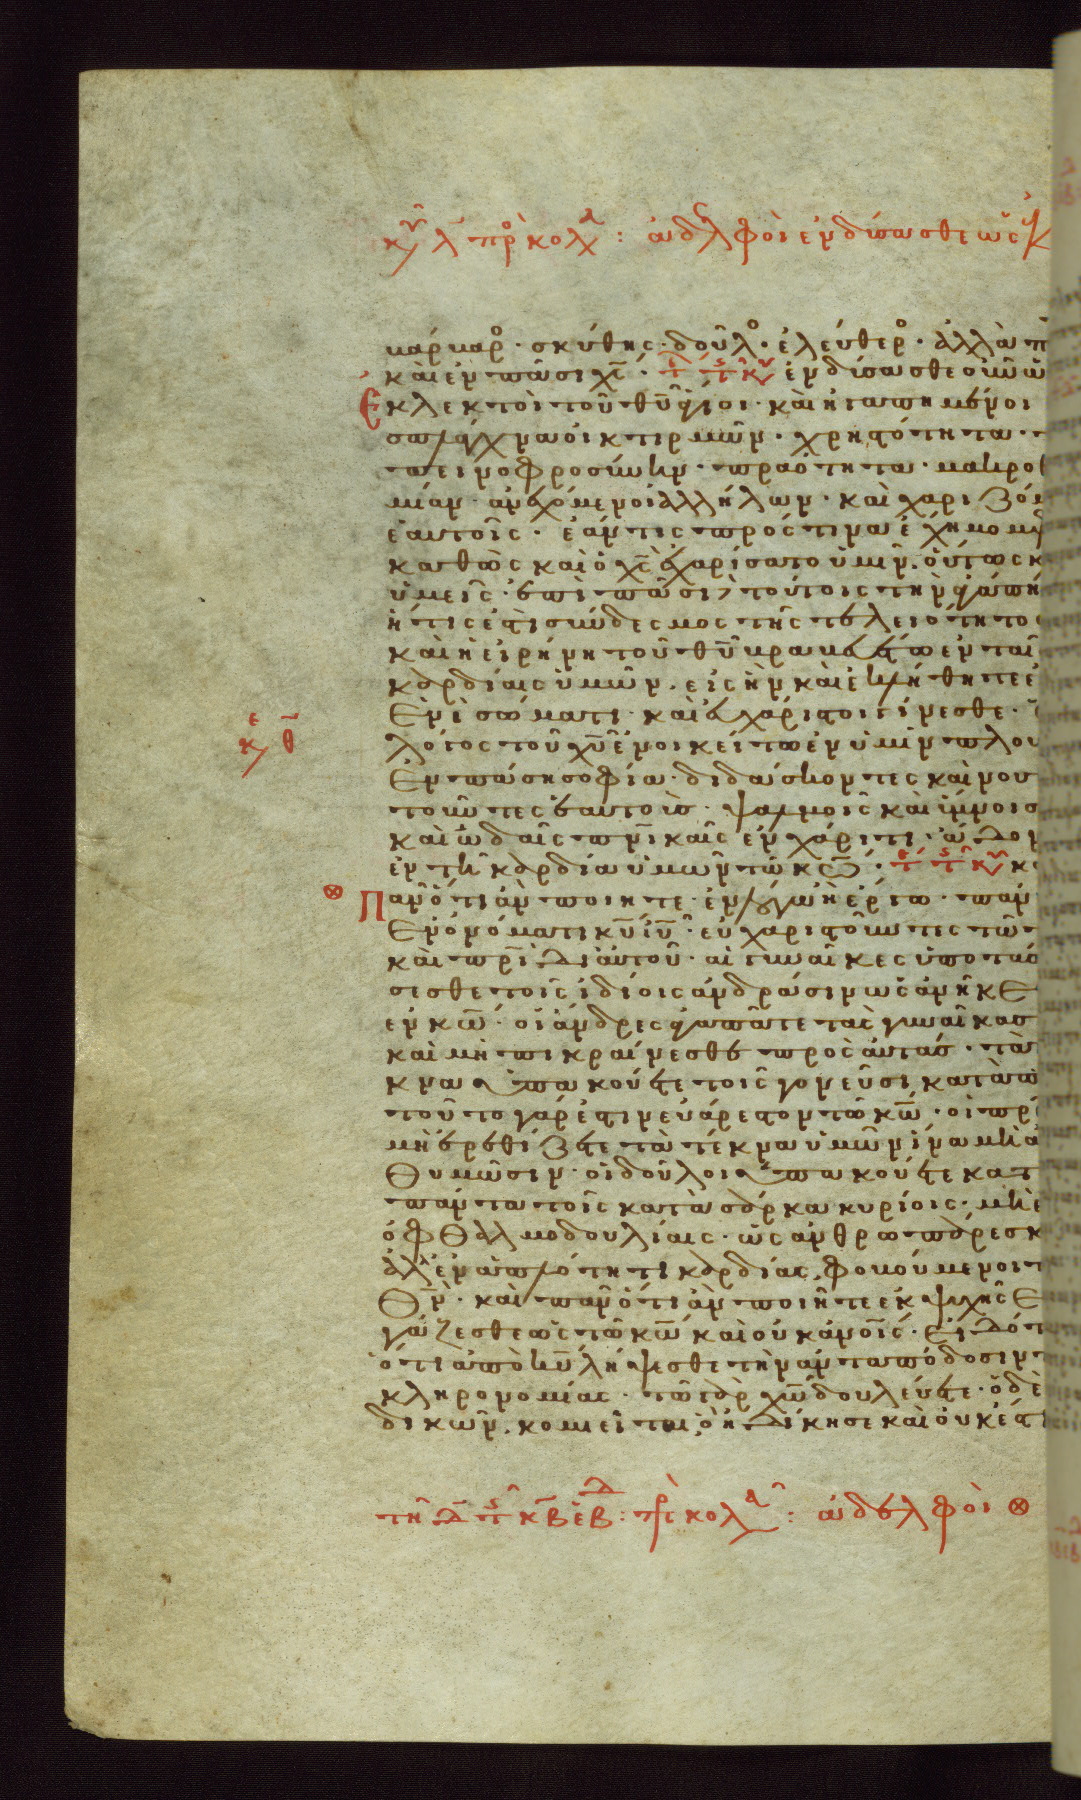 κυ λ πρ κολ : ἀδλφοὶ ἐνδύσασθε ὡς ἐκ
βάρβαρο · σκύθης · δοῦλο · ἐλεύθερο · ἀλλὰ π
καὶ ἐν πᾶσι χς · τ τ κυ ἐνδύσασθε οὖν ὡ
Ἐκλεκτοὶ τοῦ θυ ἅγιοι · καὶ ἠγαπημένοι
σπλάχνα οἰκτιρμῶν · χρηστότητα ·
ταπεινοφροσύνην · πραότητα · μακρο
μίαν · ἀνεχόμενοι ἀλλήλων · καὶ χαριζό
ἑαυτοῖς · ἐάν τις πρός τινα ἔχη μομ
καθὼς καὶ ὁ χς ἐχαρίσατο ὑμῖν · οὕτως κ
ὑμεῖς · ἐπὶ πᾶσι τούτοις τὴν ἀγάπη
ἥτις ἐστὶ σύνδεσμος τῆς τελειότητο
καὶ ἡ εἰρήνη τοῦ θυ βραβευέτω ἐν ταῖ
καρδίαις ὑμῶν · εἰς ἣν καὶ ἐκλήθητε ἐ
Ἑνὶ σώματι · καὶ εὐχάριστοι γίνεσθε ·
λόγος τοῦ χυ ἐνοικείτω ἐν ὑμῖν πλου
κε θ
Ἐν πάση σοφία · διδάσκοντες καὶ νου
τοῦντες ἑαυτοὺς · ψαλμοῖς καὶ ὕμνοις
καὶ ὠδαῖς πνικαῖς ἐν χάριτι · ἄδον
ἐν τῆ καρδία ὑμῶν τῶ κω · τ τ κυ κ
Παν ὅτι ἂν ποιῆτε · ἐν λόγω ἢ ἔργω · πάν
Ἐν ὀνόματι κυ ιυ · εὐχαριστοῦντες τῶ
καὶ πρι δι αὐτοῦ · αἱ γυναῖκες ὑποτάσ
σεσθε τοῖς ἰδίοις ἀνδράσιν ὡς ἀνῆκε
ἐν κω · οἱ ἄνδρες ἀγαπᾶτε τὰς γυναῖκας
καὶ μὴ πικραίνεσθε πρὸς αὐτάς · τὰ
κνα ὑπακούετε τοῖς γονεῦσι κατὰ π
τοῦτο γάρ ἐστιν εὐάρεστον τῶ κω · οἱ πρ
μὴ ἐρεθίζετε τὰ τέκνα ὑμῶν ἵνα μὴ ἀ
θυμῶσιν · οἱ δοῦλοι ὑπακούετε κατ
πάντα τοῖς κατὰ σάρκα κυρίοις · μὴ ἐ
ὀφθαλμοδουλίαις · ὡς ἀνθρωπάρεσκ
ἀλλ ἐν ἁπλότητι καρδίας, φοβούμενοι τ
θν · καὶ παν ὅτι ἂν ποιῆτε ἐκ ψυχῆς ἐ
γάζεσθε ὡς τῶ κω καὶ οὐκ ἀνοις · εἰδότ
ὅτι ἀπὸ κυ λήψεσθε τὴν ἀνταπόδοσιν τ
κληρονομίας · τῶ γὰρ χω δουλεύετε · ὁ δὲ
δικῶν · κομιεῖται ὃ ἠδίκησε καὶ οὐκ ἔστ
τῆ δ τ κβ εβ : πρ κολ : ἀδελφοὶ